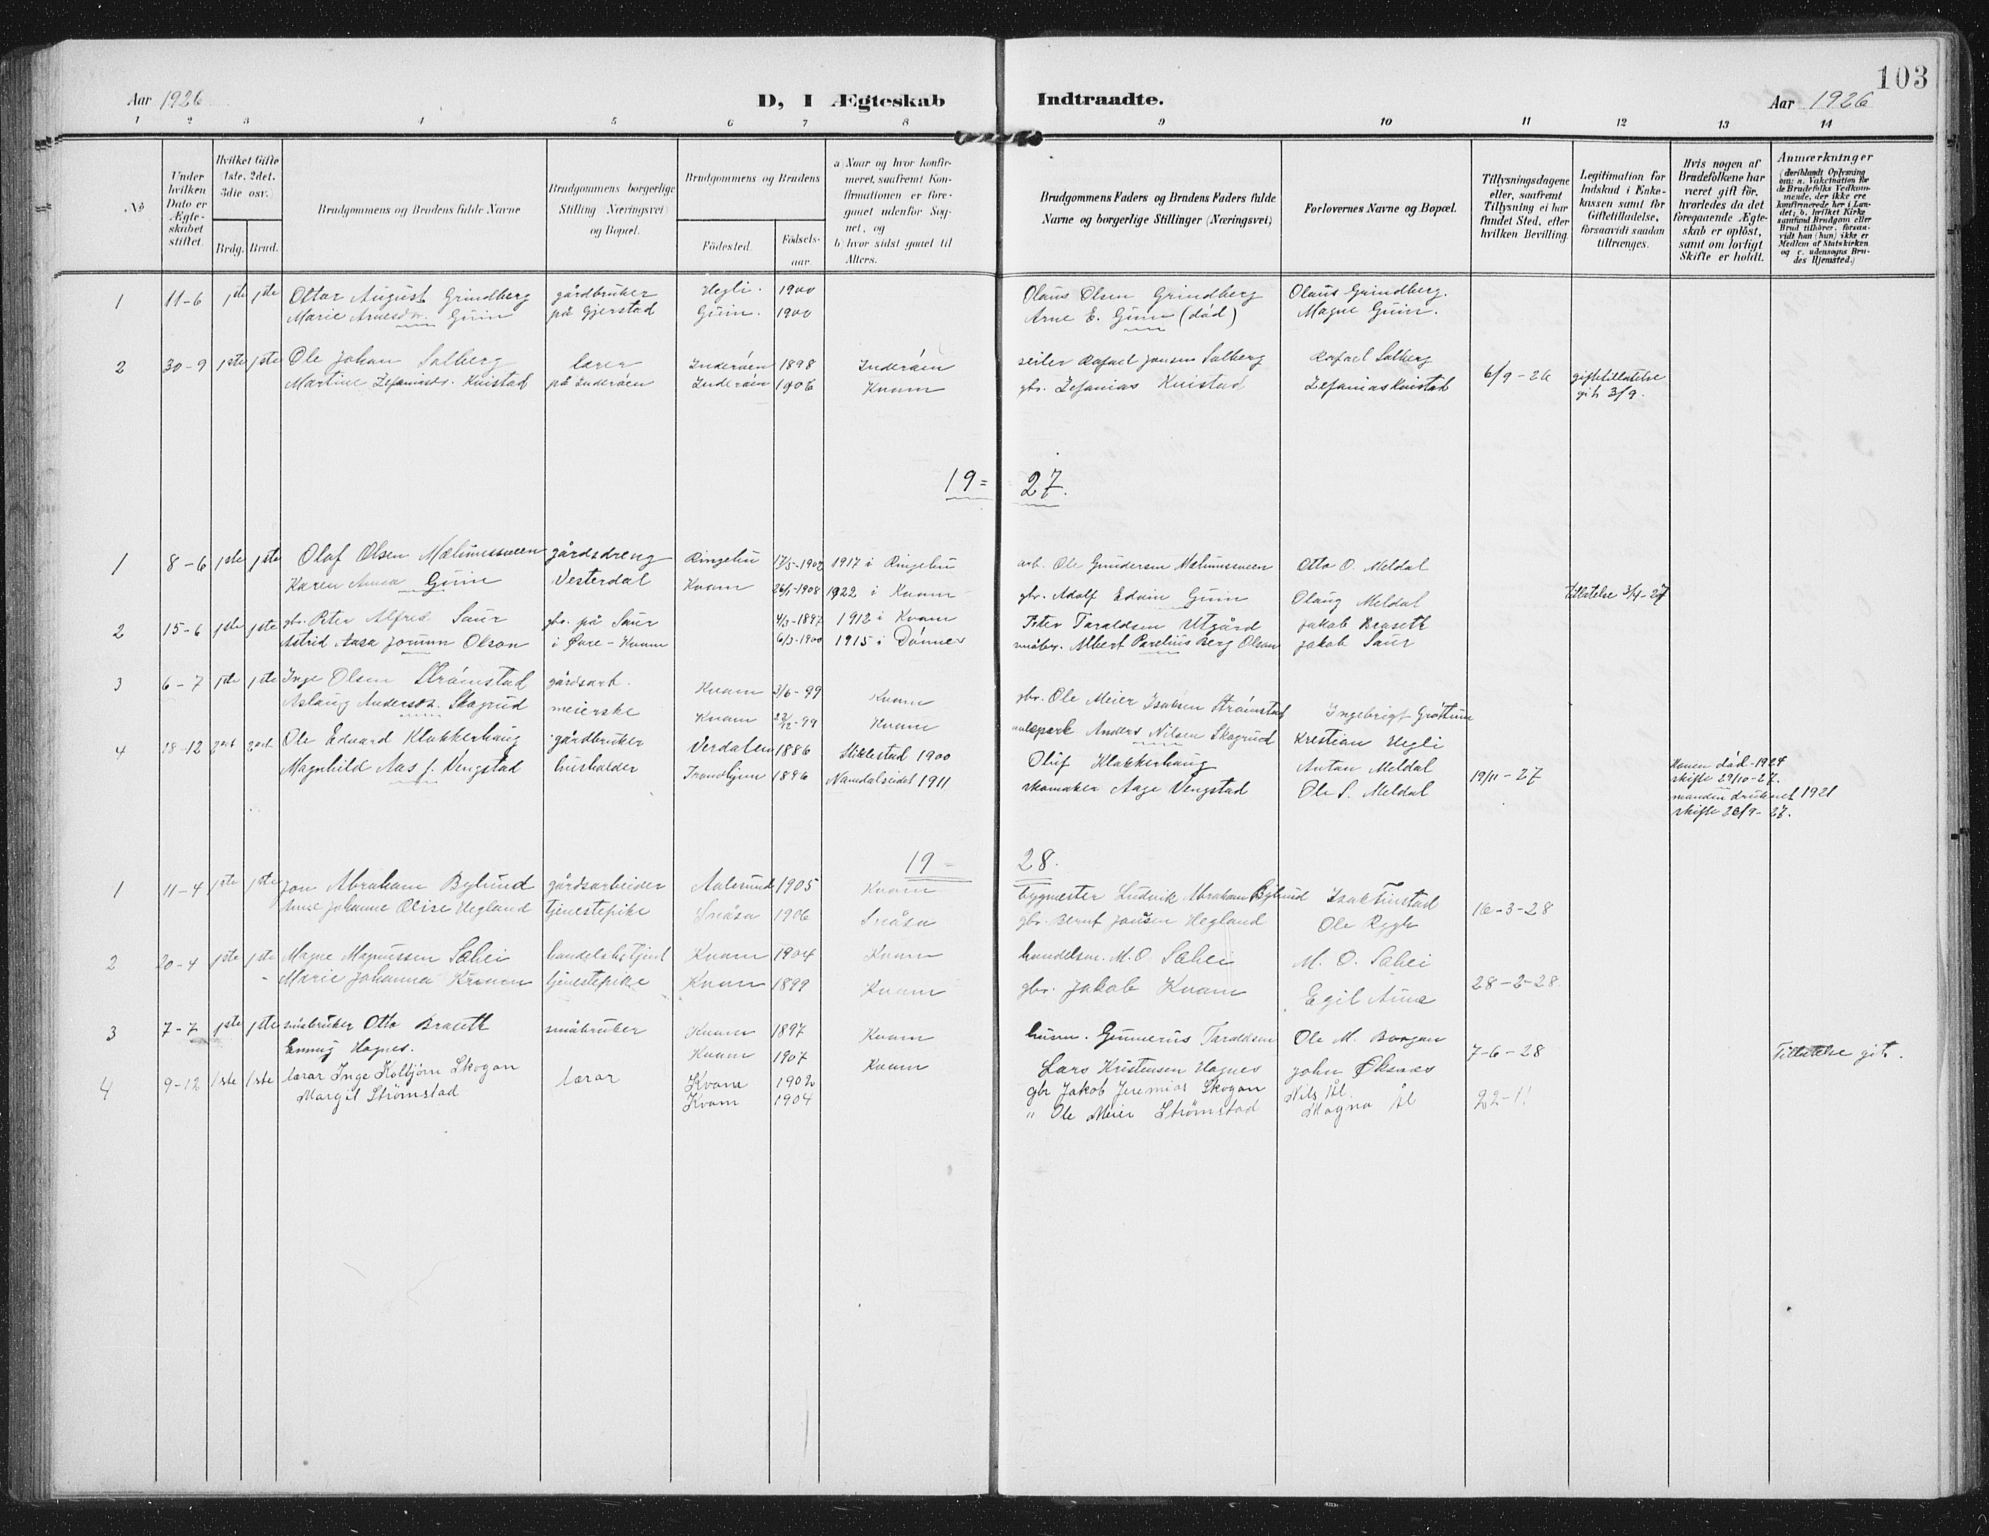 103
Aar 1926 D, I Ægteskab Indtraadte. Aar 1926
1 2 3 4 5 6 7 8 9 10 11 12 13 14
No
Under hvilken Dato er Ægteskabet stiftet.
Hvilket Gifte 1ste, 2det, 3die osv.)
Brdg. Brud.
Brudgommens og Brudens fulde Navne
Brudgommens borgerlige Stilling (Næringsvei) og Bopæl.
Brudgommens og Brudens
Födested. Födsels-aar
a) Naar og hvor konfirmeret, saafremt Konfirmationen er foregaaet udenfor Sognet, og
b) hvor sidst gaaet til Alters.
Brudgommens Faders og Brudens Faders fulde Navne og borgerlige Stillinger (Næringsvei)
Forlovernes Navne og Bopæl.
Tillysningsdagene eller, saafremt Tillysning ei har fundet Sted, efter hvilken Bevilling
Legitimation for Indskud i Enkekassen samt for Giftetilladelse, forsaavidt saadan tiltrænges.
Hvis nogen af Brudefolkene har været gift för, hvorledes da det foregaaende Ægteskab er oplöst, samt om lovligt Skifte er holdt.
Anmærkninger (deriblandt Oplysning om: a. Vakcination for de Brudefolks Vedkommende, der ikke ere konfirmerede her i Landet; b. hvilket Kirkesamfund Brudgom eller Brud tilhörer, forsaavidt han (hun) ikke er Medlem af Statskirken og c. udensogns Brudes Hjemsted.)
1 11-6 1ste 1ste Ottar August Grindberg gårdbruker Hegli. 1900 Olaus Olsen Grindberg Olaus Grindberg.
Marie Arnesdtr. Guin på Gjerstad Guin. 1900 Arne E. Guin (död) Magne Guin.
2 30-9 1ste 1ste Ole Johan Salberg lærer Inderöen 1898 Inderöen Rafael Jensen Salberg Rafael Salberg
Martine Zefaniasdtr. Knistad på Inderöen Inderöen 1906 Kvam gbr. Zefanias Knistad Zefanias Knistad 6/9-26 giftetillatelse git 3/9.
19= 27.
1 8-6 1ste 1ste Olaf Olsen gårdsdreng Ringebu 1917 i Ringebu arb. Ole Gundersen Otto O. Meldal
Karen Anna Guin Vesterdal Kvam 1908 1922 i Kvam gbr. Adolf Edvin Guin Olaug Meldal
2 15-6 1ste 1ste gbr. Peter Alfred Saur gbr. på Saur 1897 1912 i Kvam Peter Taraldsen Utgård Jakob Braseth
Astrid Aasa Jorunn Olson i Øvre-Kvam 6/3-1900 1915 i Dönnes Albert Parelius Berg Olson Jakob Saur
3 6-7 1ste 1ste Inge Olsen Strömstad gårdsarb. Kvam 3/6-99 Kvam gbr. Ole Meier Isaksen Strömstad Ingebrigt Gröttum
Aslaug Andersdtr. Skogrud meierske Kvam 99 Kvam Anders Nilsen Skogrud Kristian Hegli
4 18-12 2det 2det Ole Edvard Klukkerhaug gårdbruker Verdalen 1886 Stiklestad 1900 Oluf Klukkerhaug Anton Meldal
Magnhild Aas f. Vengstad husholder Trondhjem 1896 Namdalseidet 1911 skomaker Aage Vengstad Ole S. Meldal 19/11-27
Konen död 1924
skifte 29/10-27.
manden druknet 1921
skifte 26/9-27.
19= 28.
1 11-4 1ste 1ste Jon Abraham Bylund gårdsarbeider Aalesund 1905 Kvam bygmester Ludvik Abraham Bylund Isak Finstad
Anne Johanne Olise Hegland tjenestepike Snåsa 1906 Snåsa gbr. Bernt Jensen Hegland Ole Rygh 16-3-28
2 20-4 1ste 1ste Magne Magnussen Selei handelsbetjent Kvam 1904 Kvam handelsm. M.O. Selei M. O. Selei
Marie Johanna Kvam tjenestepike Kvam 1899 Kvam gbr. Jakob Kvam Egil Aune 28-2-28
3 7-7 1ste 1ste småbruker Otto Braseth småbruker Kvam 1897 Kvam husm. Gunnerus Taraldsen Ole M. Borgan
Emmy Hognes. Kvam 1907 Kvam Lars Kristensen Hognes John Øksnes 7-6-28 Tillatelse git.
4 9-12 1ste 1ste lærar Inge Kolbjörn Skogan lærar Kvam 1902 gbr Jakob Jeremias Skogan Nils Øl.
Margit Strømstad Kvam 1904 " Ole Meier Strømstad Magna Øl 22-11